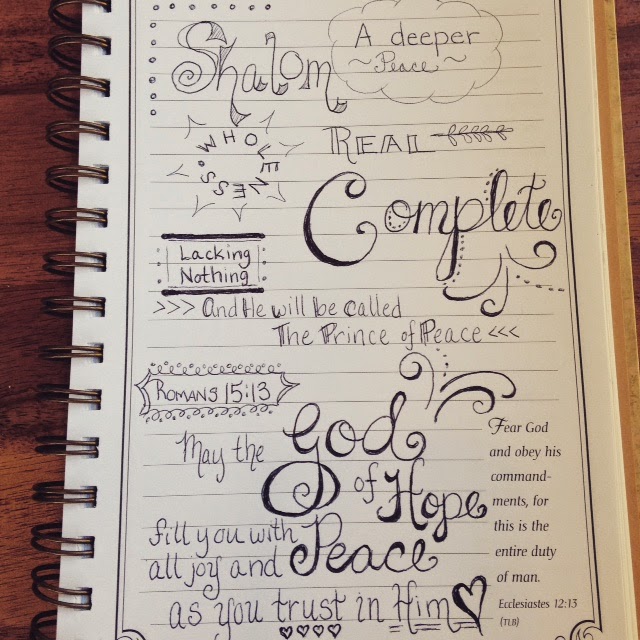 Shalom
A deeper
~ Peace ~
WHOLENESS.
REAL
Complete
Lacking
Nothing
>>> And He will be called
The Prince of Peace <<<
ROMANS 15:13
May the God
of Hope
fill you with
all joy and Peace
as you trust in Him
Fear God
and obey his
command-
ments, for
this is the
entire duty
of man.
Ecclesiastes 12:13
(TLB)